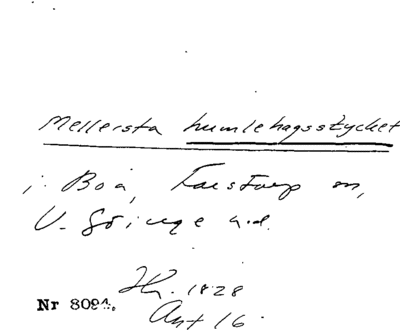 Mellersta humlehagsstycket
i Boa, Farstorp sn,
V. Göinge hd.
Nr 8094. Lh. 1828
Akt 16